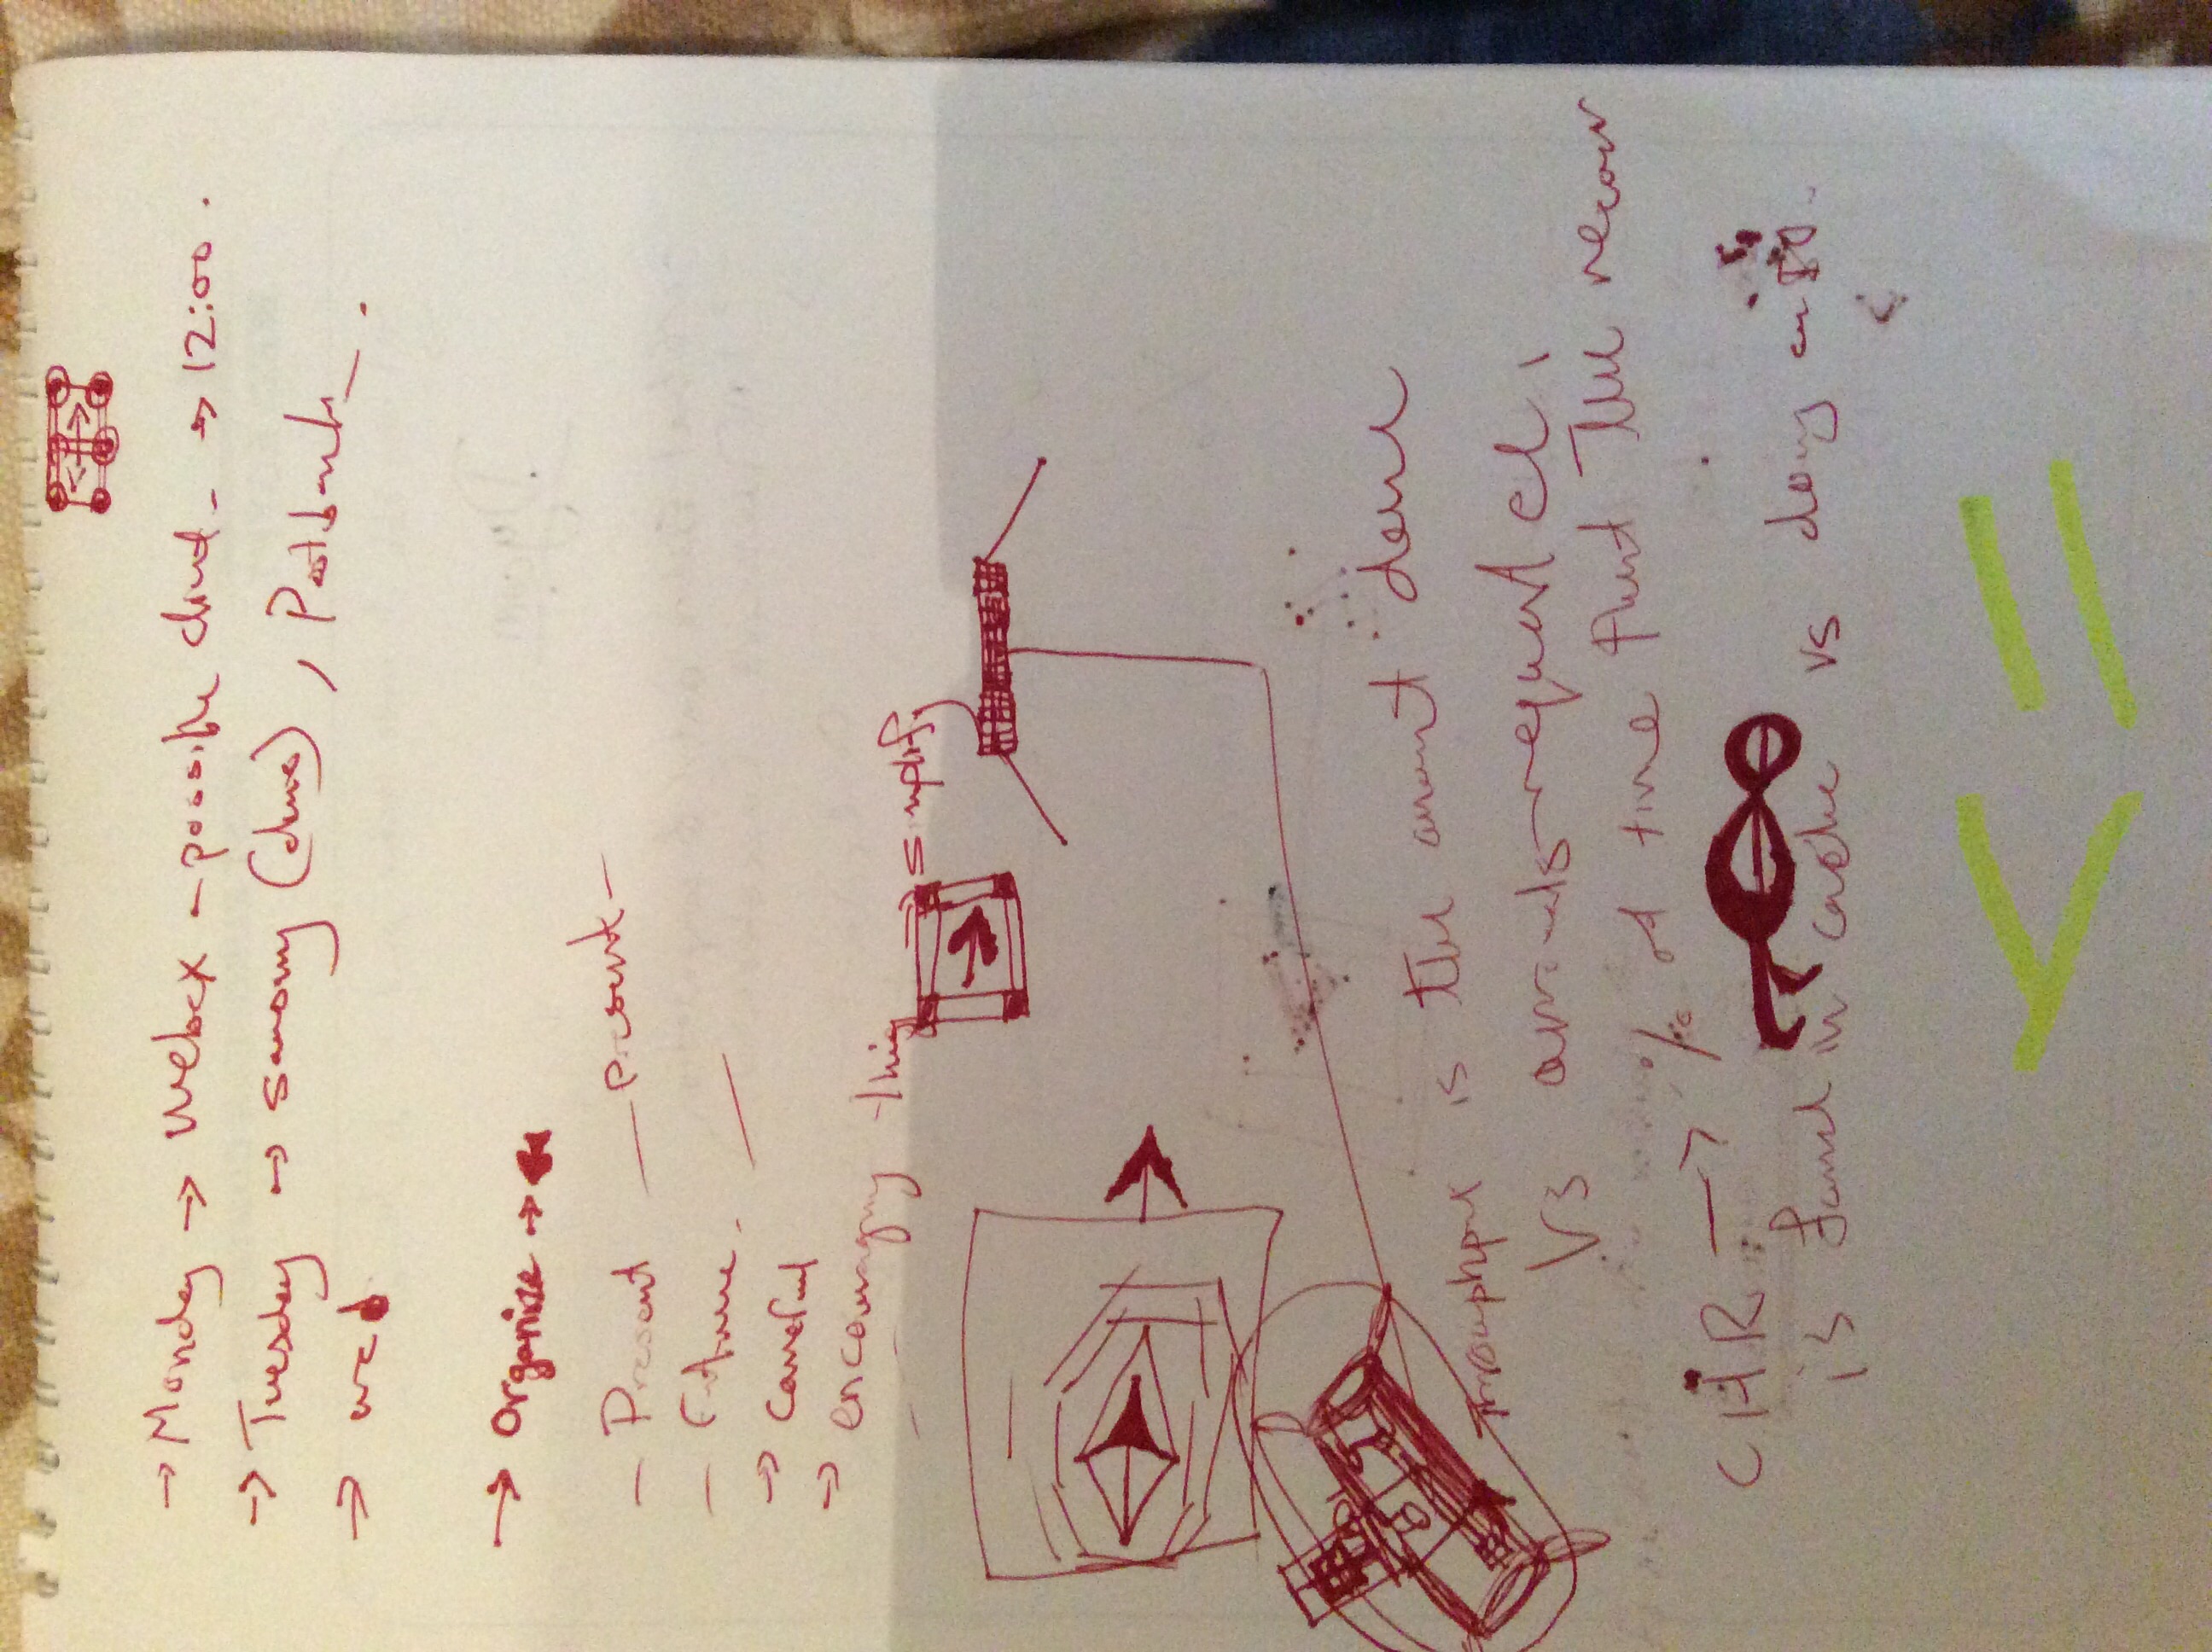 → Monday → Webex - possible client - → 12:00 .
→ Tuesday → , Postbank .
→ wed
→ Organize →
- Present — present -
- Future . —
→ careful
→ encouraging thing
→ simplify
Throughput is the amount done
Vs arrivals request
CHR → % of time that the
is found in cache vs doing an IO.
<=